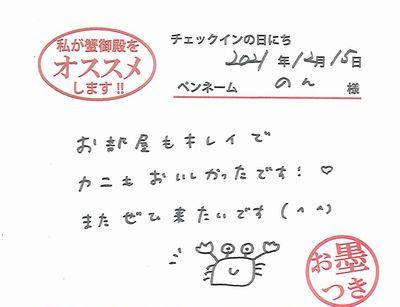 私が蟹御殿を
オススメ
します!!
チェックインの日にち
2021年12月15日
ペンネーム のん 様
お部屋もキレイで
カニもおいしかったです!♡
またぜひ来たいです(^^)
お墨
つき